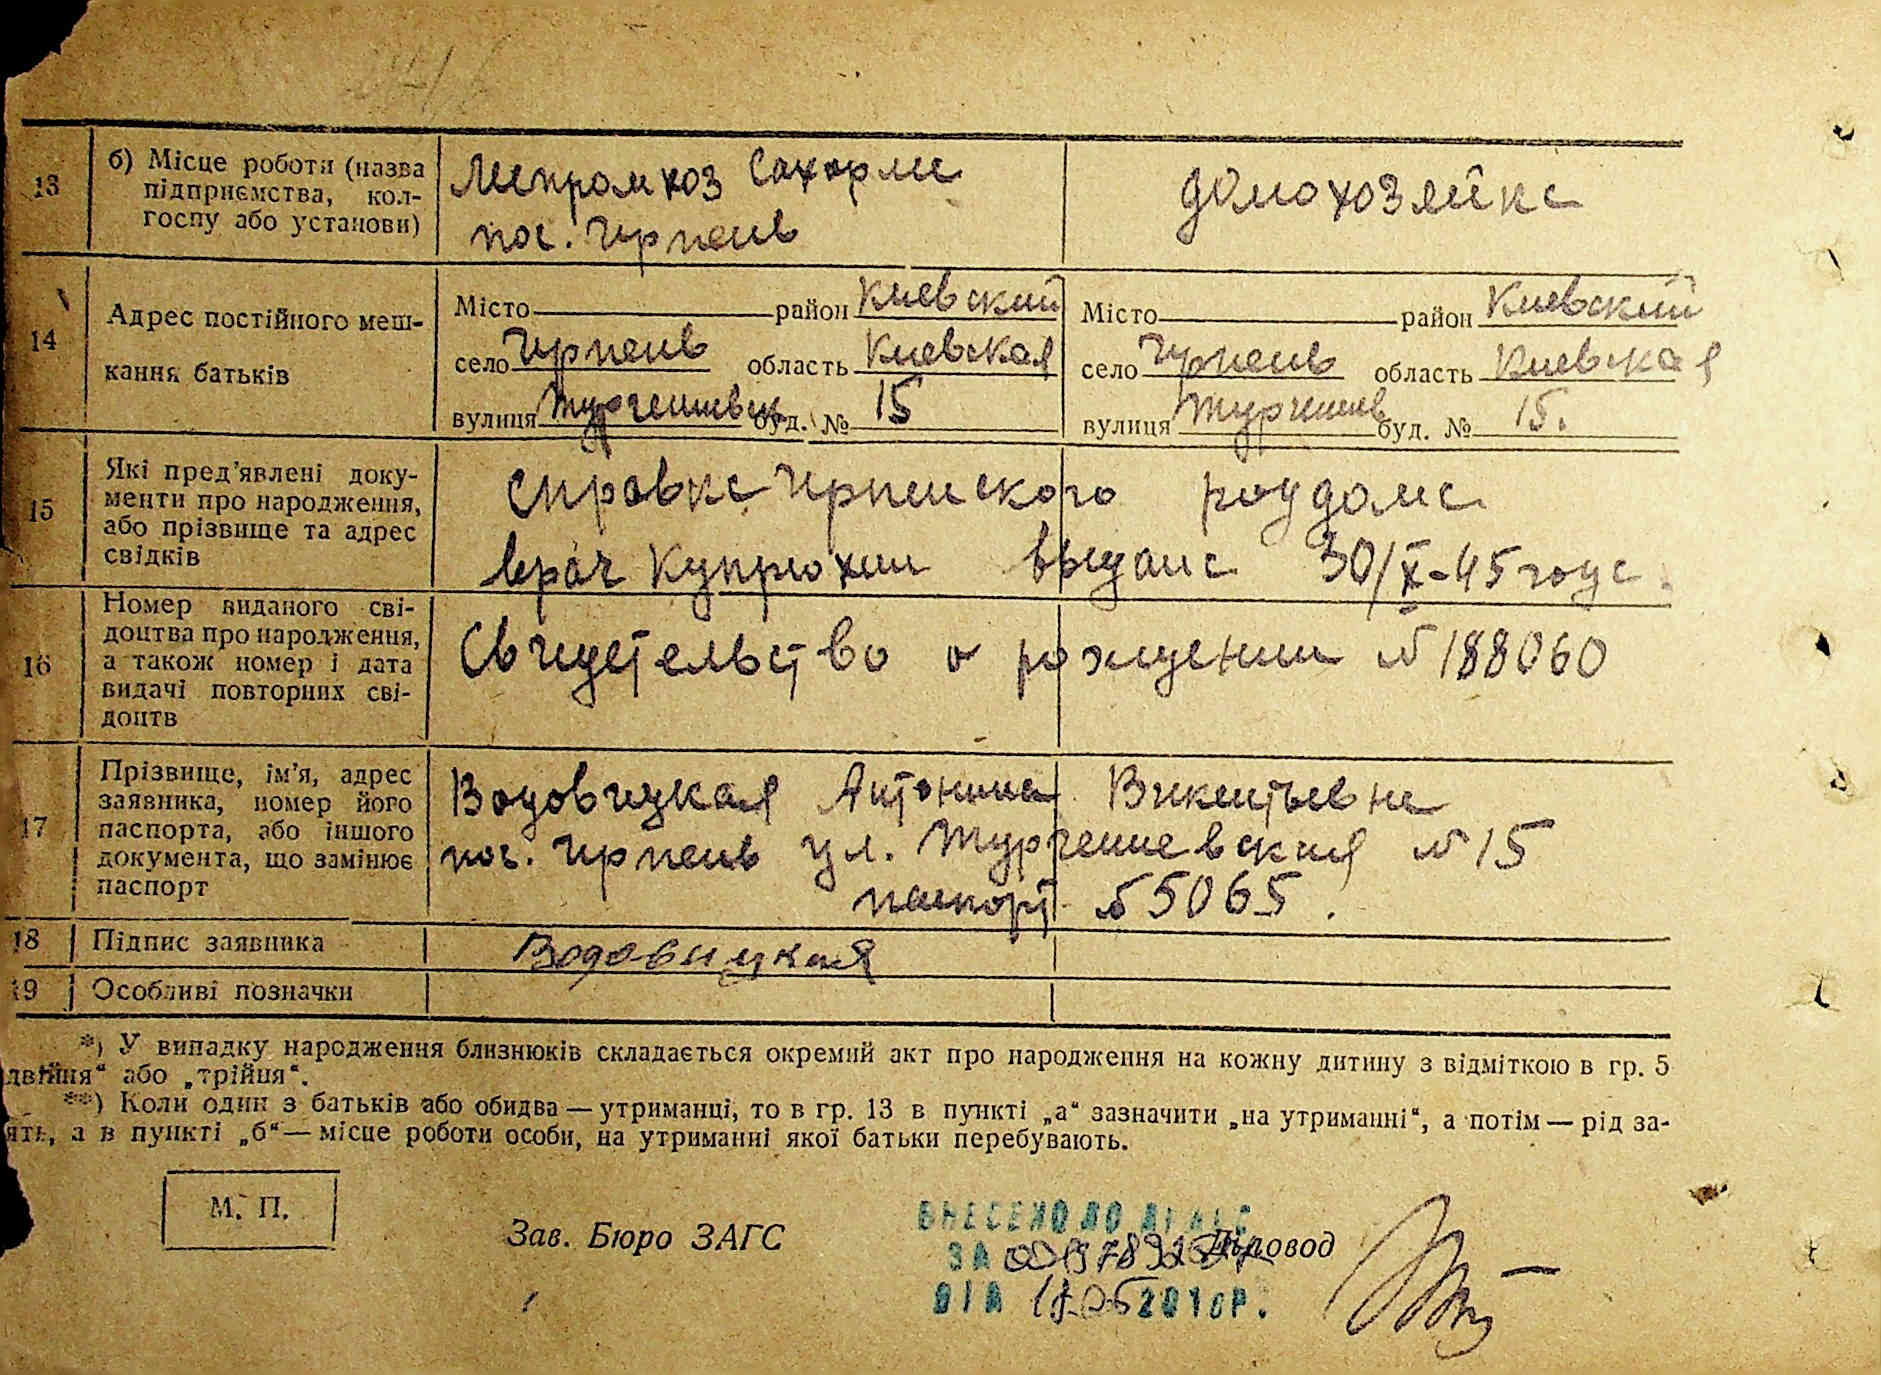 13
б) Місце роботи (назва підприємства, кол-госпу або установи)
пос. Ирпень
домохозяйка
14
Адрес постійного меш-
кання батьків
Місто район Киевский
село Ирпень область Киевская
вулиця Тургеневск буд. № 15
Місто район Киевский
село Ирпень область Киевская
вулиця Тургенев буд. № 15.
15
Які пред'явлені доку-
менти про народження,
або прізвище та адрес
свідків
справка Ирпенского роддома
врач Купрюхин выдана 30/X-45 года.
16
Номер виданого сві-
доцтва про народження,
а також номер і дата
видачі повторних сві-
доцтв
Свидетельство о рождении № 188060
17
Прізвище, ім'я, адрес
заявника, номер його
паспорта, або іншого
документа, що замінює
паспорт
Водовицкая Антонина Викентьевна
пос. Ирпень ул. Тургеневская № 15
паспорт № 5065.
18 Підпис заявника
Водовицкая
19 Особливі позначки
*) У випадку народження близнюків складається окремий акт про народження на кожну дитину з відміткою в гр. 5
двійня“ або „трійня“.
**) Коли один з батьків або обидва — утриманці, то в гр. 13 в пункті „а“ зазначити „на утриманні“, а потім — рід за-
ять, а в пункті „б“ — місце роботи особи, на утриманні якої батьки перебувають.
М. П.
Зав. Бюро ЗАГС
ВНЕСЕНО ДО ДРАЦС
ЗА
Діловод
ВІД 2016Р.